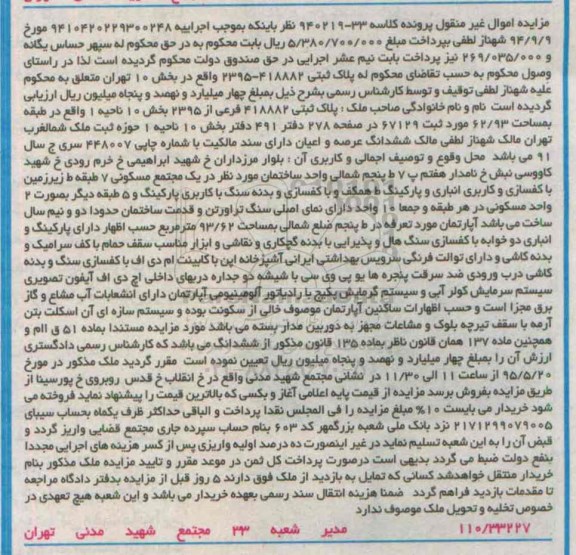 مزایده اموال غیر منقول پرونده کلاسه ۳۳-۹۴۰۲۱۹ نظر باینکه بموجب اجراییه ۹۴۱۰۴۲۰۲۲۹۳۰۰۲۴۸ مورخ
۹۴/۹/۹ شهناز لطفی بپرداخت مبلغ ۵/۳۸۰/۷۰۰/۰۰۰ ریال بابت محکوم به در حق محکوم له سپهر حساس یگانه
و ۲۶۹/۰۳۵/۰۰۰ نیز پرداخت بابت نیم عشر اجرایی در حق صندوق دولت محکوم گردیده است لذا در راستای
وصول محکوم به حسب تقاضای محکوم له پلاک ثبتی ۴۱۸۸۸۲-۲۳۹۵ واقع در بخش ۱۰ تهران متعلق به محکوم
علیه شهناز لطفی توقیف و توسط کارشناس رسمی بشرح ذیل بمبلغ چهار میلیارد و نهصد و پنجاه میلیون ریال ارزیابی
گردیده است نام و نام خانوادگی صاحب ملک : پلاک ثبتی ۴۱۸۸۸۲ فرعی از ۲۳۹۵ بخش ۱۰ ناحیه ۱ واقع در طبقه
بمساحت ۶۲/۹۳ مورد ثبت ۶۷۱۲۹ در صفحه ۲۷۸ دفتر ۴۹۱ دفتر بخش ۱۰ ناحیه ۱ حوزه ثبت ملک شمالغرب
تهران مالک شهناز لطفی مالک ششدانگ عرصه و اعیان دارای سند مالکیت با شماره چاپی ۴۴۸۰۰۷ سری ج سال
۹۱ می باشد محل وقوع و توصیف اجمالی و کاربری آن : بلوار مرزداران خ شهید ابراهیمی خ خرم رودی خ شهید
کاووسی نبش خ نامدار هفتم پ ۷ ط پنجم شمالی واحد ساختمان مورد نظر در یک مجتمع مسکونی ۷ طبقه ط زیرزمین
با کفسازی و کاربری انباری و پارکینگ ط همکف و با کفسازی و بدنه سنگ با کاربری پارکینگ و ۵ طبقه دیگر بصورت ۲
واحد مسکونی در هر طبقه و جمعا ۱۰ واحد دارای نمای اصلی سنگ تراورتن و قدمت ساختمان حدودا دو و نیم سال
ساخت می باشد آپارتمان مورد تعرفه در ط پنجم ضلع شمالی بمساحت ۹۳/۶۲ مترمربع حسب اظهار دارای پارکینگ و
انباری دو خوابه با کفسازی سنگ هال و پذیرایی با بدنه گچکاری و نقاشی و ابزار مناسب سقف حمام با کف سرامیک و
بدنه کاشی و دارای توالت فرنگی سرویس بهداشتی ایرانی آشپزخانه اپن با کابینت ام دی اف با کفسازی سنگ و بدنه
کاشی درب ورودی ضد سرقت پنجره ها یو پی وی سی با شیشه دو جداره دربهای داخلی اچ دی اف آیفون تصویری
سیستم سرمایش کولر آبی و سیستم گرمایش پکیج با رادیاتور آلومینیومی آپارتمان دارای انشعابات آب مشاع و گاز
برق مجزا است و حسب اظهارات ساکنین آپارتمان موصوف خالی از سکونت بوده و سیستم سازه ای آن اسکلت بتن
آرمه با سقف تیرچه بلوک و مشاعات مجهز به دوربین مدار بسته می باشد مورد مزایده مستندا بماده ۵۱ ق اام و
همچنین ماده ۱۳۷ همان قانون ناظر بماده ۱۳۵ قانون مذکور از ششدانگ می باشد که کارشناس رسمی دادگستری
ارزش آن را بمبلغ چهار میلیارد و نهصد و پنجاه میلیون ریال تعیین نموده است مقرر گردید ملک مذکور در مورخ
۹۵/۵/۲۰ از ساعت ۱۱ الی ۱۱/۳۰ در نشانی مجتمع شهید مدنی واقع در خ انقلاب خ قدس روبروی خ پورسینا از
طریق مزایده بفروش برسد مزایده از قیمت پایه اعلامی آغاز و بکسی که بالاترین قیمت را پیشنهاد نماید فروخته می
شود خریدار می بایست ۱۰% مبلغ مزایده را فی المجلس نقدا پرداخت و الباقی حداکثر ظرف یکماه بحساب سیبای
۲۱۷۱۲۹۹۰۷۹۰۰۵ نزد بانک ملی شعبه بزرگمهر کد ۶۰۳ بنام حساب سپرده جاری مجتمع قضایی واریز گردد و
قبض آن را به این شعبه تسلیم نماید در غیر اینصورت ده درصد اولیه واریزی پس از کسر هزینه های اجرایی مجددا
بنفع دولت ضبط می گردد بدیهی است درصورت پرداخت کل ثمن در موعد مقرر و تایید مزایده ملک مذکور بنام
خریدار منتقل خواهدشد کسانی که تمایل به بازدید از ملک فوق دارند ۵ روز قبل از مزایده بدفتر دادگاه مراجعه
تا مقدمات بازدید فراهم گردد ضمنا هزینه انتقال سند رسمی بعهده خریدار می باشد و این شعبه هیچ تعهدی در
خصوص تخلیه و تحویل ملک موصوف ندارد
۱۱۰/۳۳۲۲۷ مدیر شعبه ۳۳ مجتمع شهید مدنی تهران